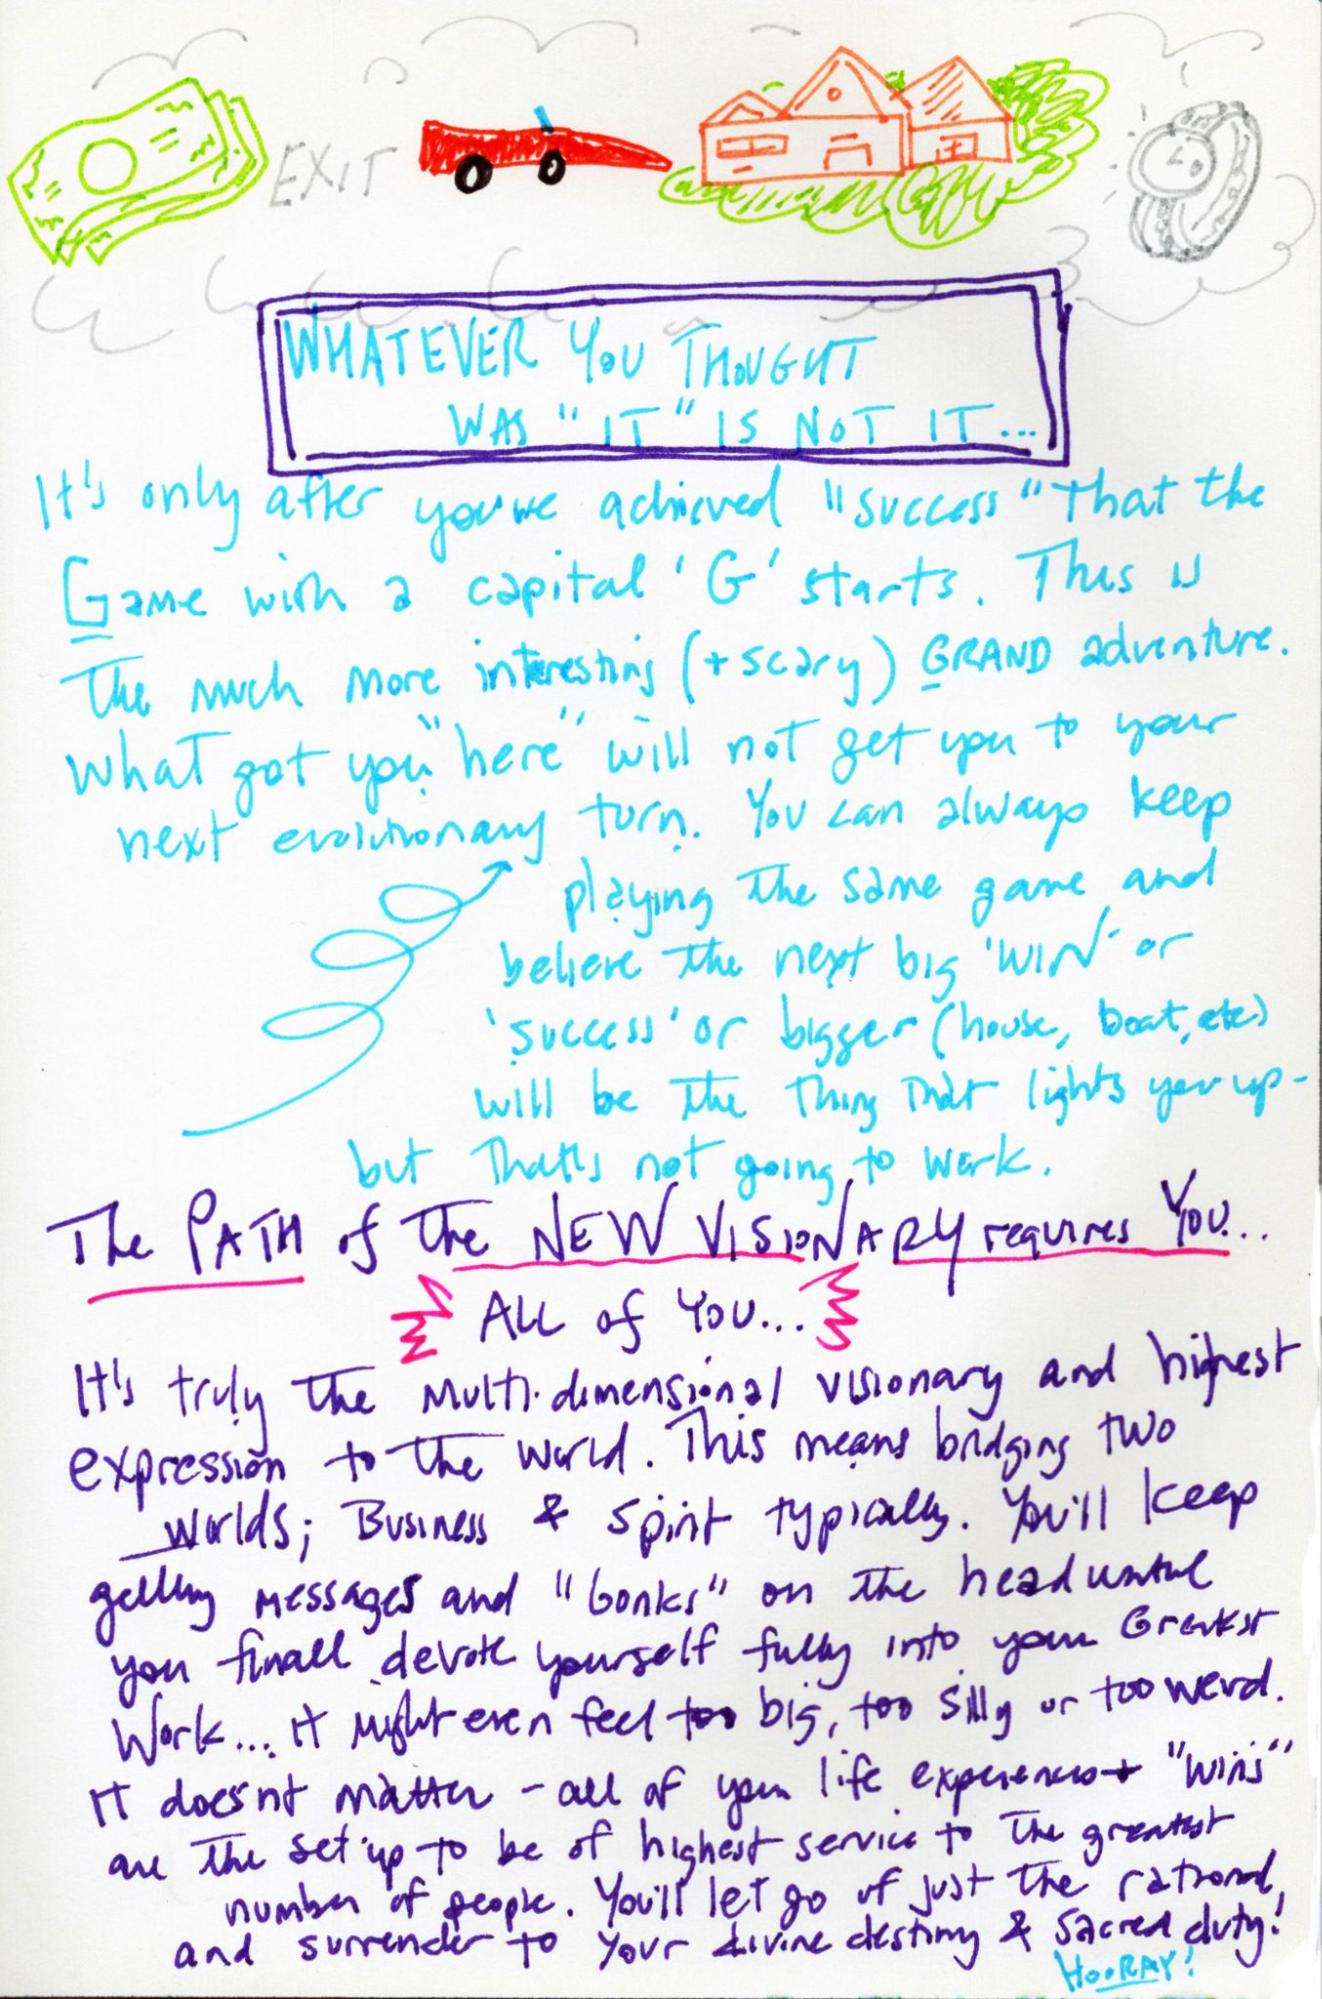 EXIT
WHATEVER YOU THOUGHT
WAS "IT" IS NOT IT...
It's only after you've achieved "success" That the
Game with a capital 'G' starts. This is
The much more interesting (+ scary) GRAND adventure.
What got you "here" will not get you to your
next evolutionary turn. You can always keep
playing The same game and
believe The next big 'WIN' or
'success' or bigger (house, boat, etc)
will be The Thing That lights you up -
but That's not going to work.
The PATH of The NEW VISIONARY requires YOU...
ALL of YOU...
It's truly The Multi-dimensional visionary and highest
expression to The World. This means bridging two
worlds; Business & Spirit typically. You'll keep
getting messages and "bonks" on The head until
you finall devote yourself fully into your Greatest
Work... it might even feel too big, too silly or too weird.
IT doesn't matter - all of your life experiences + "wins"
are The set up to be of highest service to The greatest
number of people. You'll let go of just The rational,
and surrender to Your divine destiny & sacred duty!
HOORAY!